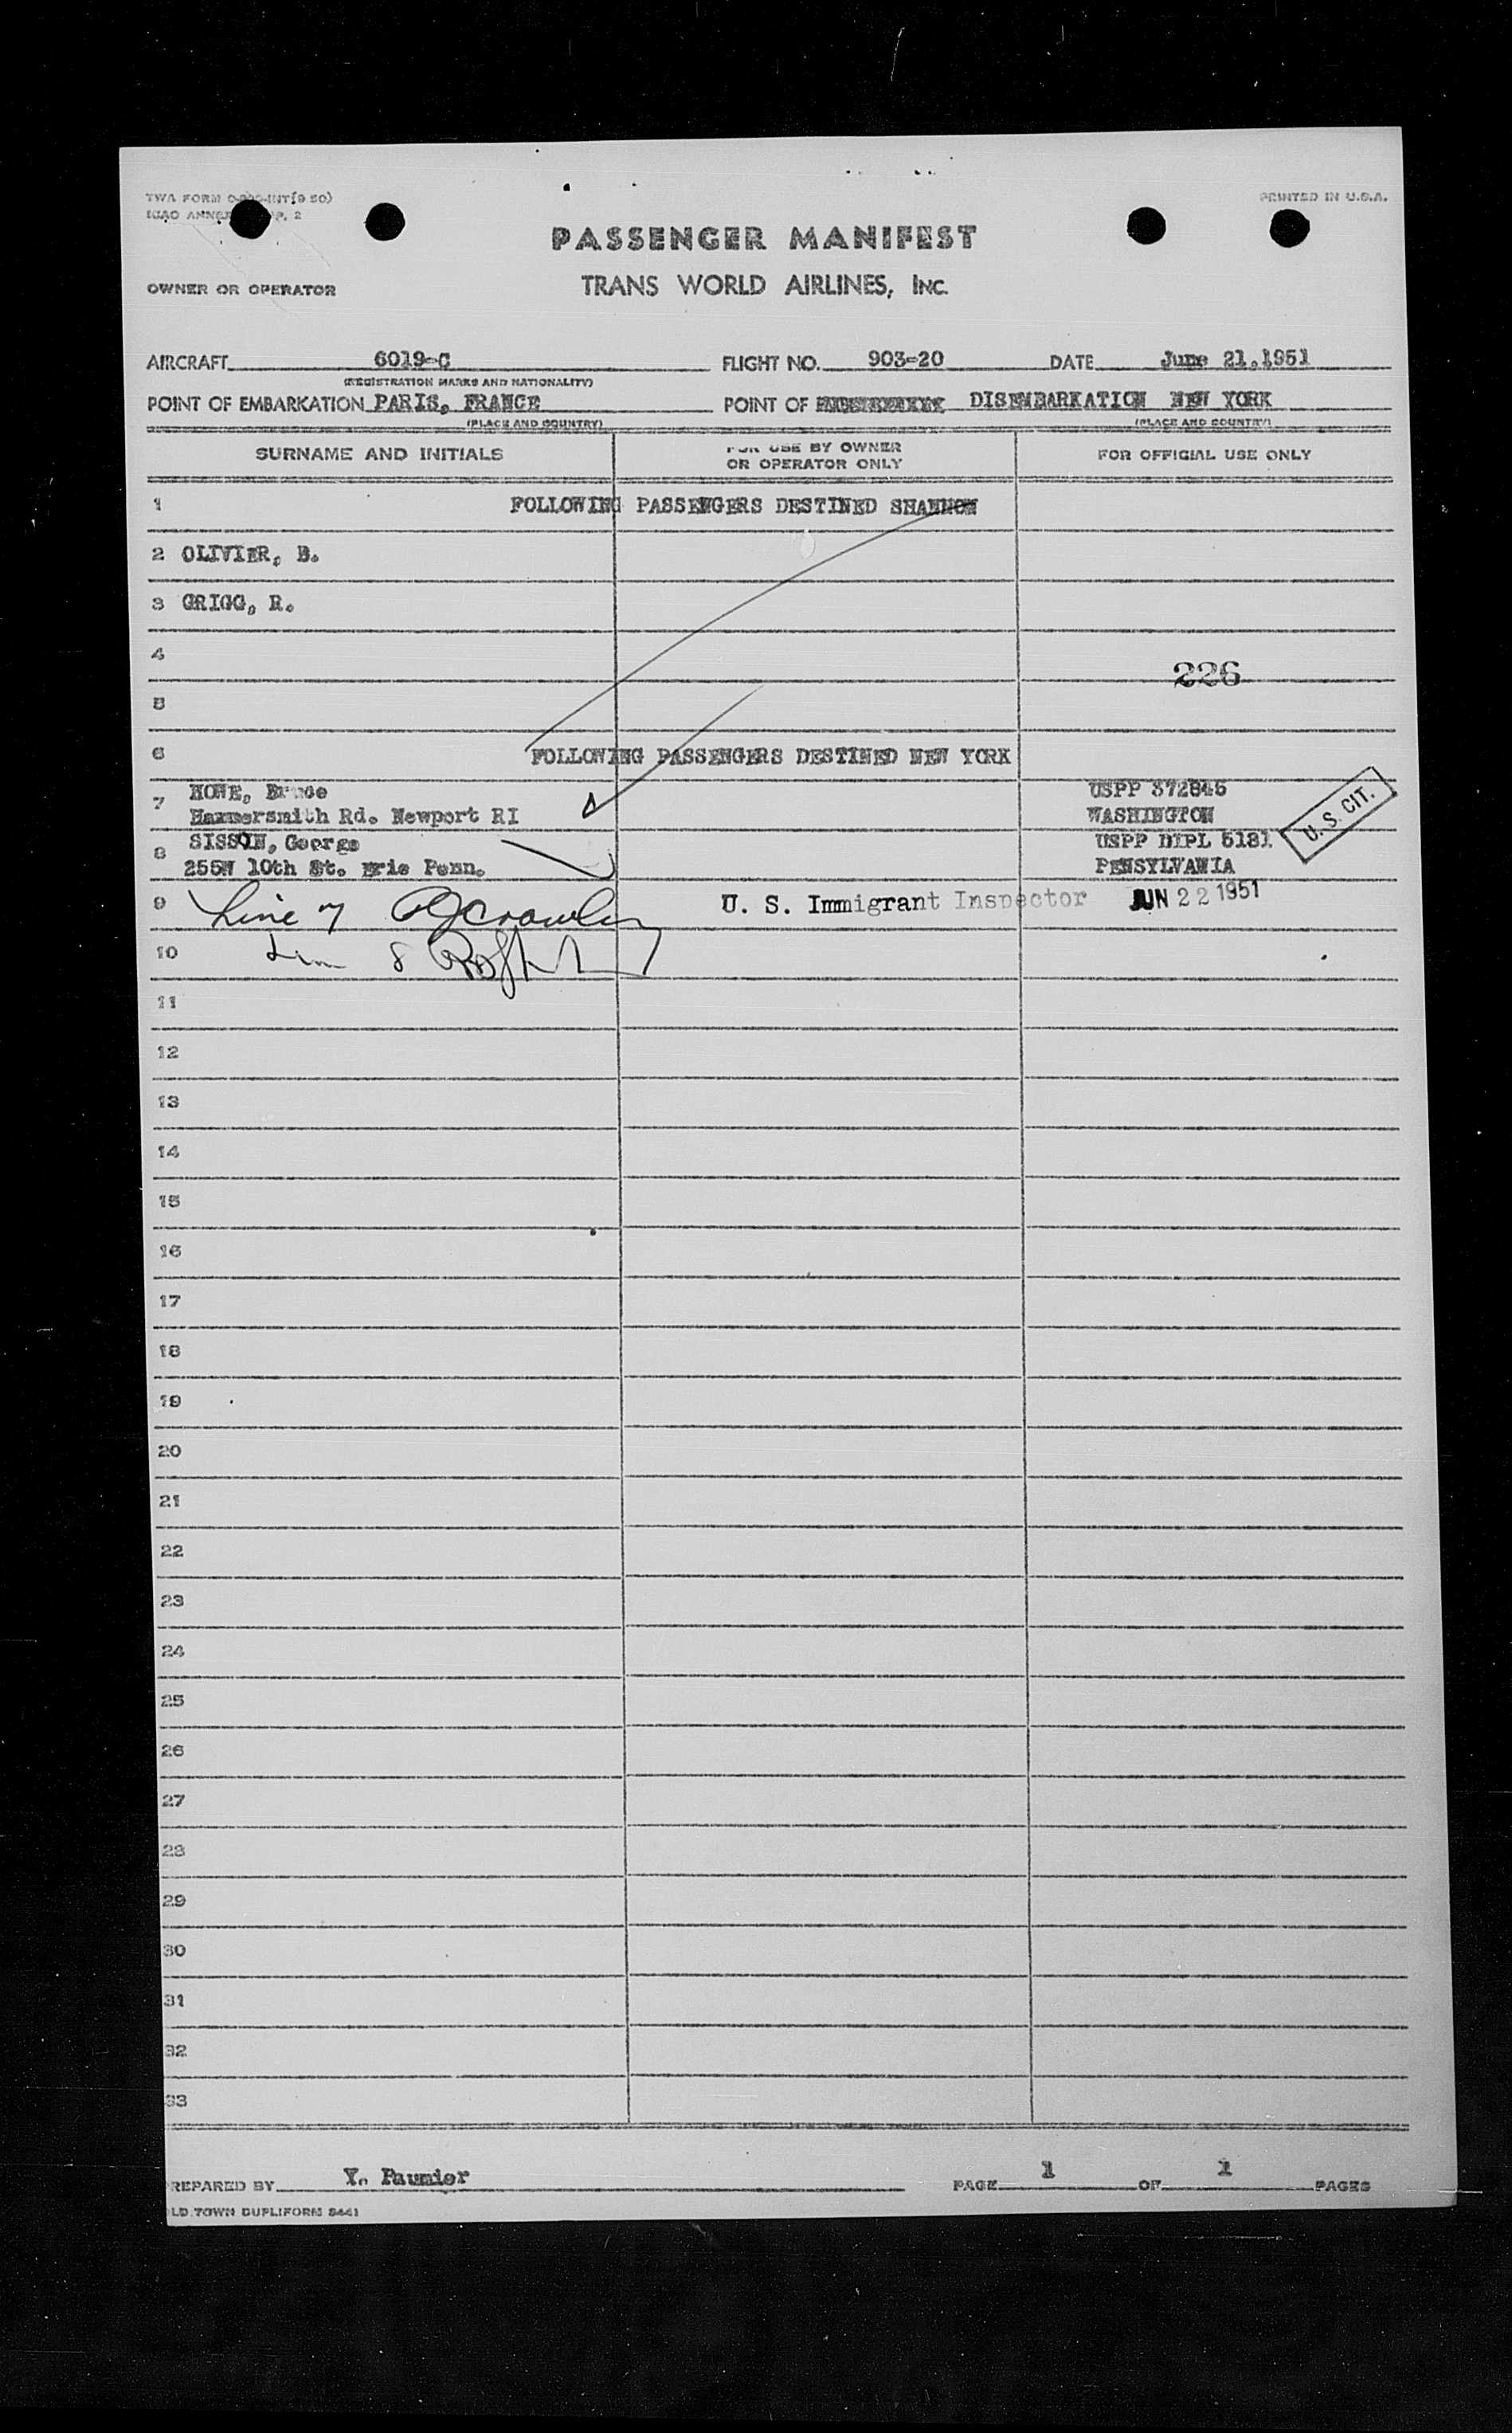 TWA FORM INT(9 50)
ICAO 2
PRINTED IN U.S.A.
PASSENGER MANIFEST
OWNER OR OPERATOR
TRANS WORLD AIRLINES, INC.
AIRCRAFT 6019-C FLIGHT NO. 903-20 DATE June 21,1951
(REGISTRATION MARKS AND NATIONALITY)
POINT OF EMBARKATION PARIS, FRANCE POINT OF DISEMBARKATION NEW YORK
(PLACE AND COUNTRY) (PLACE AND COUNTRY)
SURNAME AND INITIALS FOR USE BY OWNER OR OPERATOR ONLY FOR OFFICIAL USE ONLY
1 FOLLOWING PASSENGERS DESTINED SHANNON
2 OLIVIER, B.
3 GRIGG, R.
4
226
5
6 FOLLOWING PASSENGERS DESTINED NEW YORK
7 HOWE, Bruce USPP 372845
Hammersmith Rd. Newport RI WASHINGTON
U. S. CIT.
8 SISSON, George USPP DIPL 5181
255W 10th St. Erie Penn. PENSYLVANIA
9 Line 7 U. S. Immigrant Inspector JUN 22 1951
10 8
11
12
13
14
15
16
17
18
19
20
21
22
23
24
25
26
27
28
29
30
31
32
33
PREPARED BY Y. Paumier PAGE 1 OF 1 PAGES
OLD TOWN DUPLIFORM 5441